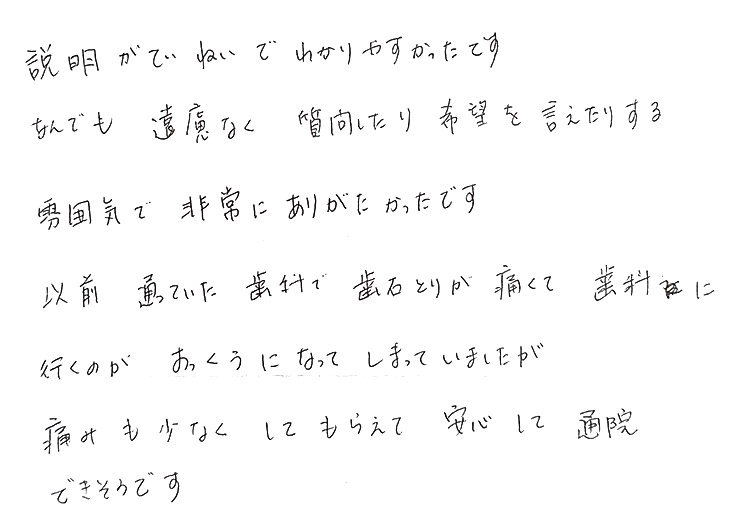 説明がていねいでわかりやすかったです
なんでも 遠慮なく 質問したり 希望を言えたりする
雰囲気で 非常にありがたかったです
以前 通っていた 歯科で 歯石とりが 痛くて 歯科医に
行くのが おっくうになって しまっていましたが
痛みも少なく してもらえて 安心して 通院
できそうです